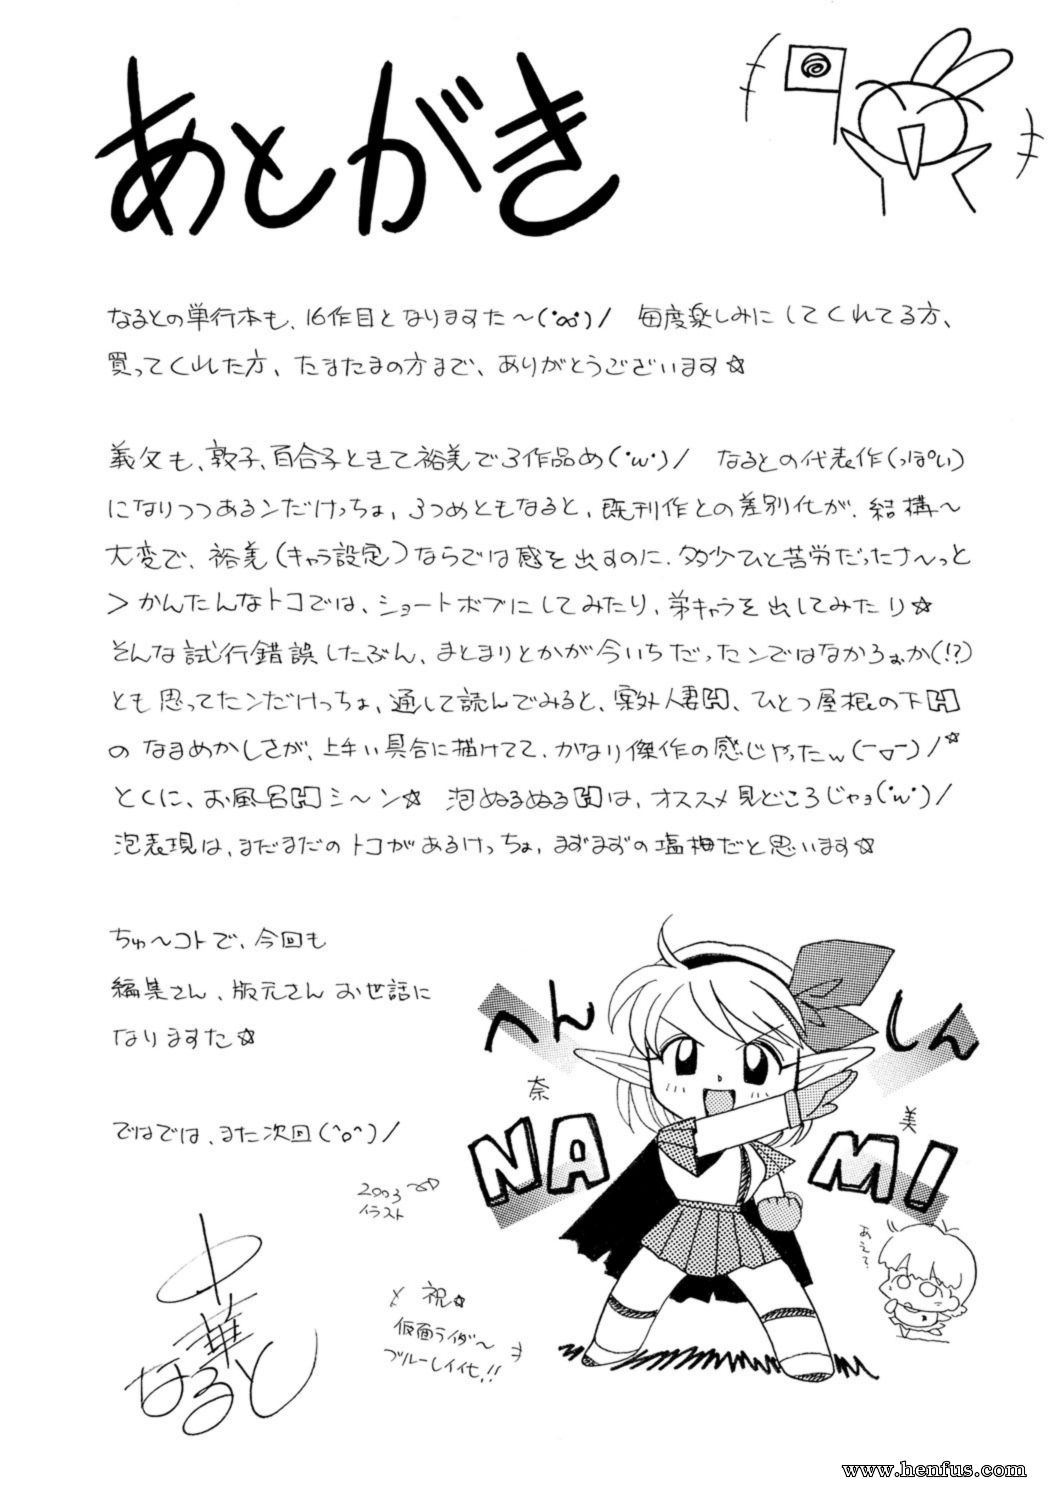 あとがき
なるとの単行本も、16作目となりますた～(°∞°)/　毎度楽しみにしてくれてる方、
買ってくれた方、たまたまの方まで、ありがとうございます☆
義父も、敦子、百合子ときて裕美で3作品め('ω')/　なるとの代表作(っぽい)
になりつつあるンだけっちょ、3つめともなると、既刊作との差別化が、結構～
大変で、裕美(キャラ設定)ならでは感を出すのに、多少ひと苦労だったナ～っと
>かんたんなトコでは、ショートボブにしてみたり、弟キャラを出してみたり☆
そんな試行錯誤したぶん、まとまりとかが今いちだったンではなかろぉか(!?)
とも思ってたンだけっちょ、通して読んでみると、案外人妻H、ひとつ屋根の下H
のなまめかしさが、上手い具合に描けてて、かなり傑作の感じやったw(￣▽￣)/*
とくに、お風呂Hシ～ン☆　泡ぬるぬるHは、オススメ見どころじゃョ('ω')/
泡表現は、まだまだのトコがあるけっちょ、まずまずの塩梅だと思います☆
ちゅ～コトで、今回も
編集さん、版元さんお世話に
なりますた☆
ではでは、また次回(^o^)/
2003
イラスト
中華
なると
へん
しん
奈
美
NA
MI
あえて?
祝☆
仮面ライダ～
ブルーレイ化!!
www.henfus.com